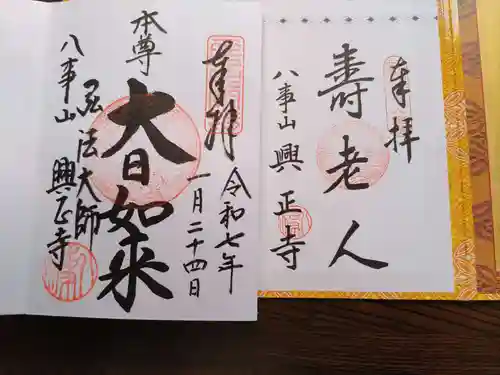 奉拝
令和七年
一月二十四日
本尊
大日如来
弘法大師
八事山
興正寺
奉拝
寿老人
八事山
興正寺